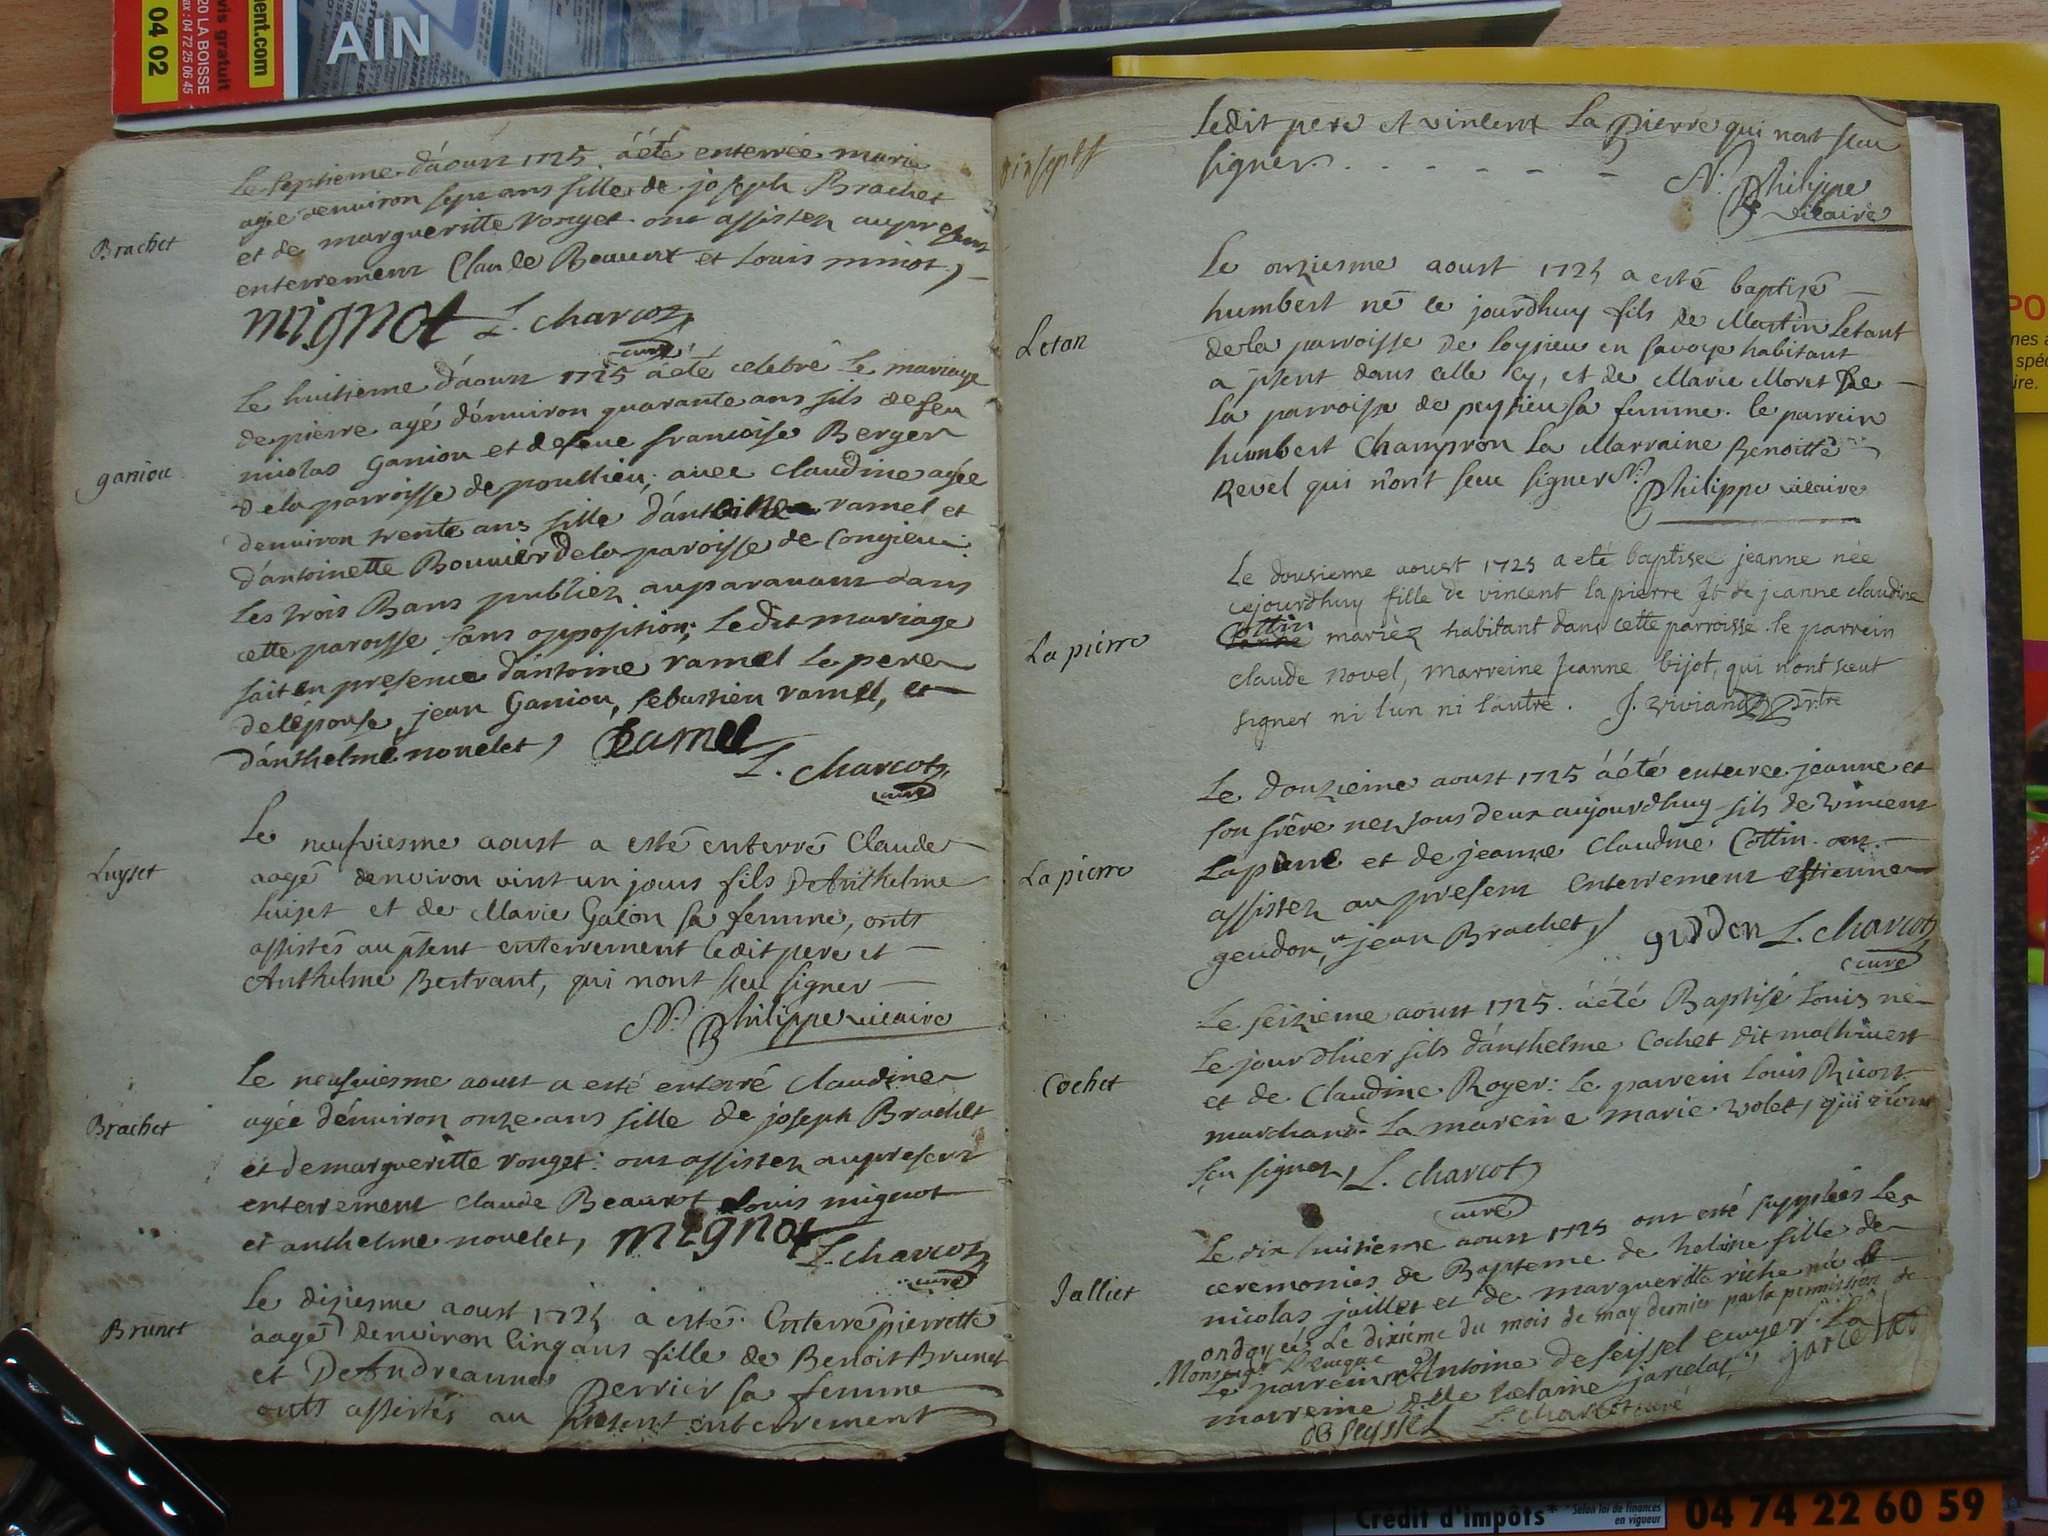 ment.com
vis gratuit
20 LA BOISSE
Fax : 04 72 25 06 45
04 02
AIN
Le septieme d'aoust 1725 a été enterrée marie
agée denuiron sept ans fille de joseph Brachet
et de margueritte rouget ont assistez au present
enterrement Claude Beaurot et Louis minot
Brachet
mignot L. charcot
curé
Le huitieme d'aoust 1725 a été celebré le mariage
de pierre agé d'enuiron quarante ans fils de feu
nicolas Ganiou et de feue francoise Berger
ganiou
de la parroisse de poullieu, auec claudine agée
denuiron trente ans fille d'antoine ramel et
d'antoinette Bouuier de la paroisse de Congieu
les trois Bans publiez auparauant dans
cette paroisse sans opposition; Ledit mariage
fait en presence d'antoine ramel le pere
de l'épouse, jean Ganiou, sebastien ramel, et
d'anthelme nouelet, Ramel
L. charcot
curé
Le neufviesme aoust a esté enterré Claude
Luyset
aagé denviron vint un jours fils D'Anthelme
Luiset et de Marie Galon sa femme, onts
assistés au pñent enterrement ledit pere et
Anthelme Bertrant, qui nont sçeu signer
N. Philippe vicaire
Le neufuiesme aoust a esté enterré Claudine
Brachet
agée d'énuiron onze ans fille de joseph Brachet
et de margueritte rouget: ont assistez au present
enterrement claude Beaurot Louis mignot
et anthelme nouelet, mignot
L. charcot
curé
Le disiesme aoust 1725 a esté Enterré pierrette
Brunet
aagé denviron cinq ans fille de Benoit Brunet
et De Andreanne Perrier sa femme
onts assistés au present enterrement
ledit pere et vincent La Pierre qui nont sceu
signer
N. Philippe
vicaire
Le onziesme aoust 1725 a esté baptisé
humbert né ce jourdhuy fils de Martin Letant
Letan
de la parroisse de loysieu en savoye habitant
a pñent dans celle cy, et de Marie Moret de
la parroisse de peysieu sa femme. le parrein
humbert Champion La Marraine Benoitte
Revel qui n'ont sceu signer N.
Philippe vicaire
Le dousieme aoust 1725 a eté baptisee jeanne née
cejourdhuy fille de vincent la pierre Et de jeanne claudine
Cottin
mariéz habitant dans cette parroisse le parrein
La pierre
claude novel, marreine Jeanne bijot, qui n'ont sceut
signer ni l'un ni l'autre. J. Viviand Prtre
Le douzieme aoust 1725 a été enterree jeanne et
son frère nez tous deux aujourdhuy fils de vincent
Lapierre et de jeanne Claudine Cottin. ont
La pierre
assistez au present enterrement estienne
geudon, et jean Brachet, gudden L. charcot
curé
Le seizieme aoust 1725. a été Baptisé Louis né
le jour d'hier fils d'anthelme Cochet dit malhiuert
Cochet
et de Claudine Royer: le parrein Louis Ricort
marchand La mareine marie volet, qui n'ont
sçu signer, L. charcot
curé
Le dix huitieme aoust 1725 ont esté suppléés les
ceremonies de Bapteme de helaine fille de
Jalliet
nicolas jaillet et de margueritte riche née et
ondoyée Le dixiéme du mois de may dernier par la permission de
Monseigr L'eveque
Le parrein mre Antoine de seissel ecuyer. La
marreine dlle helaine jarcelat,
de seyssel L. charcot curé
Crédit d'impôts*
* Selon loi de finances
en vigueur
04 74 22 60 59